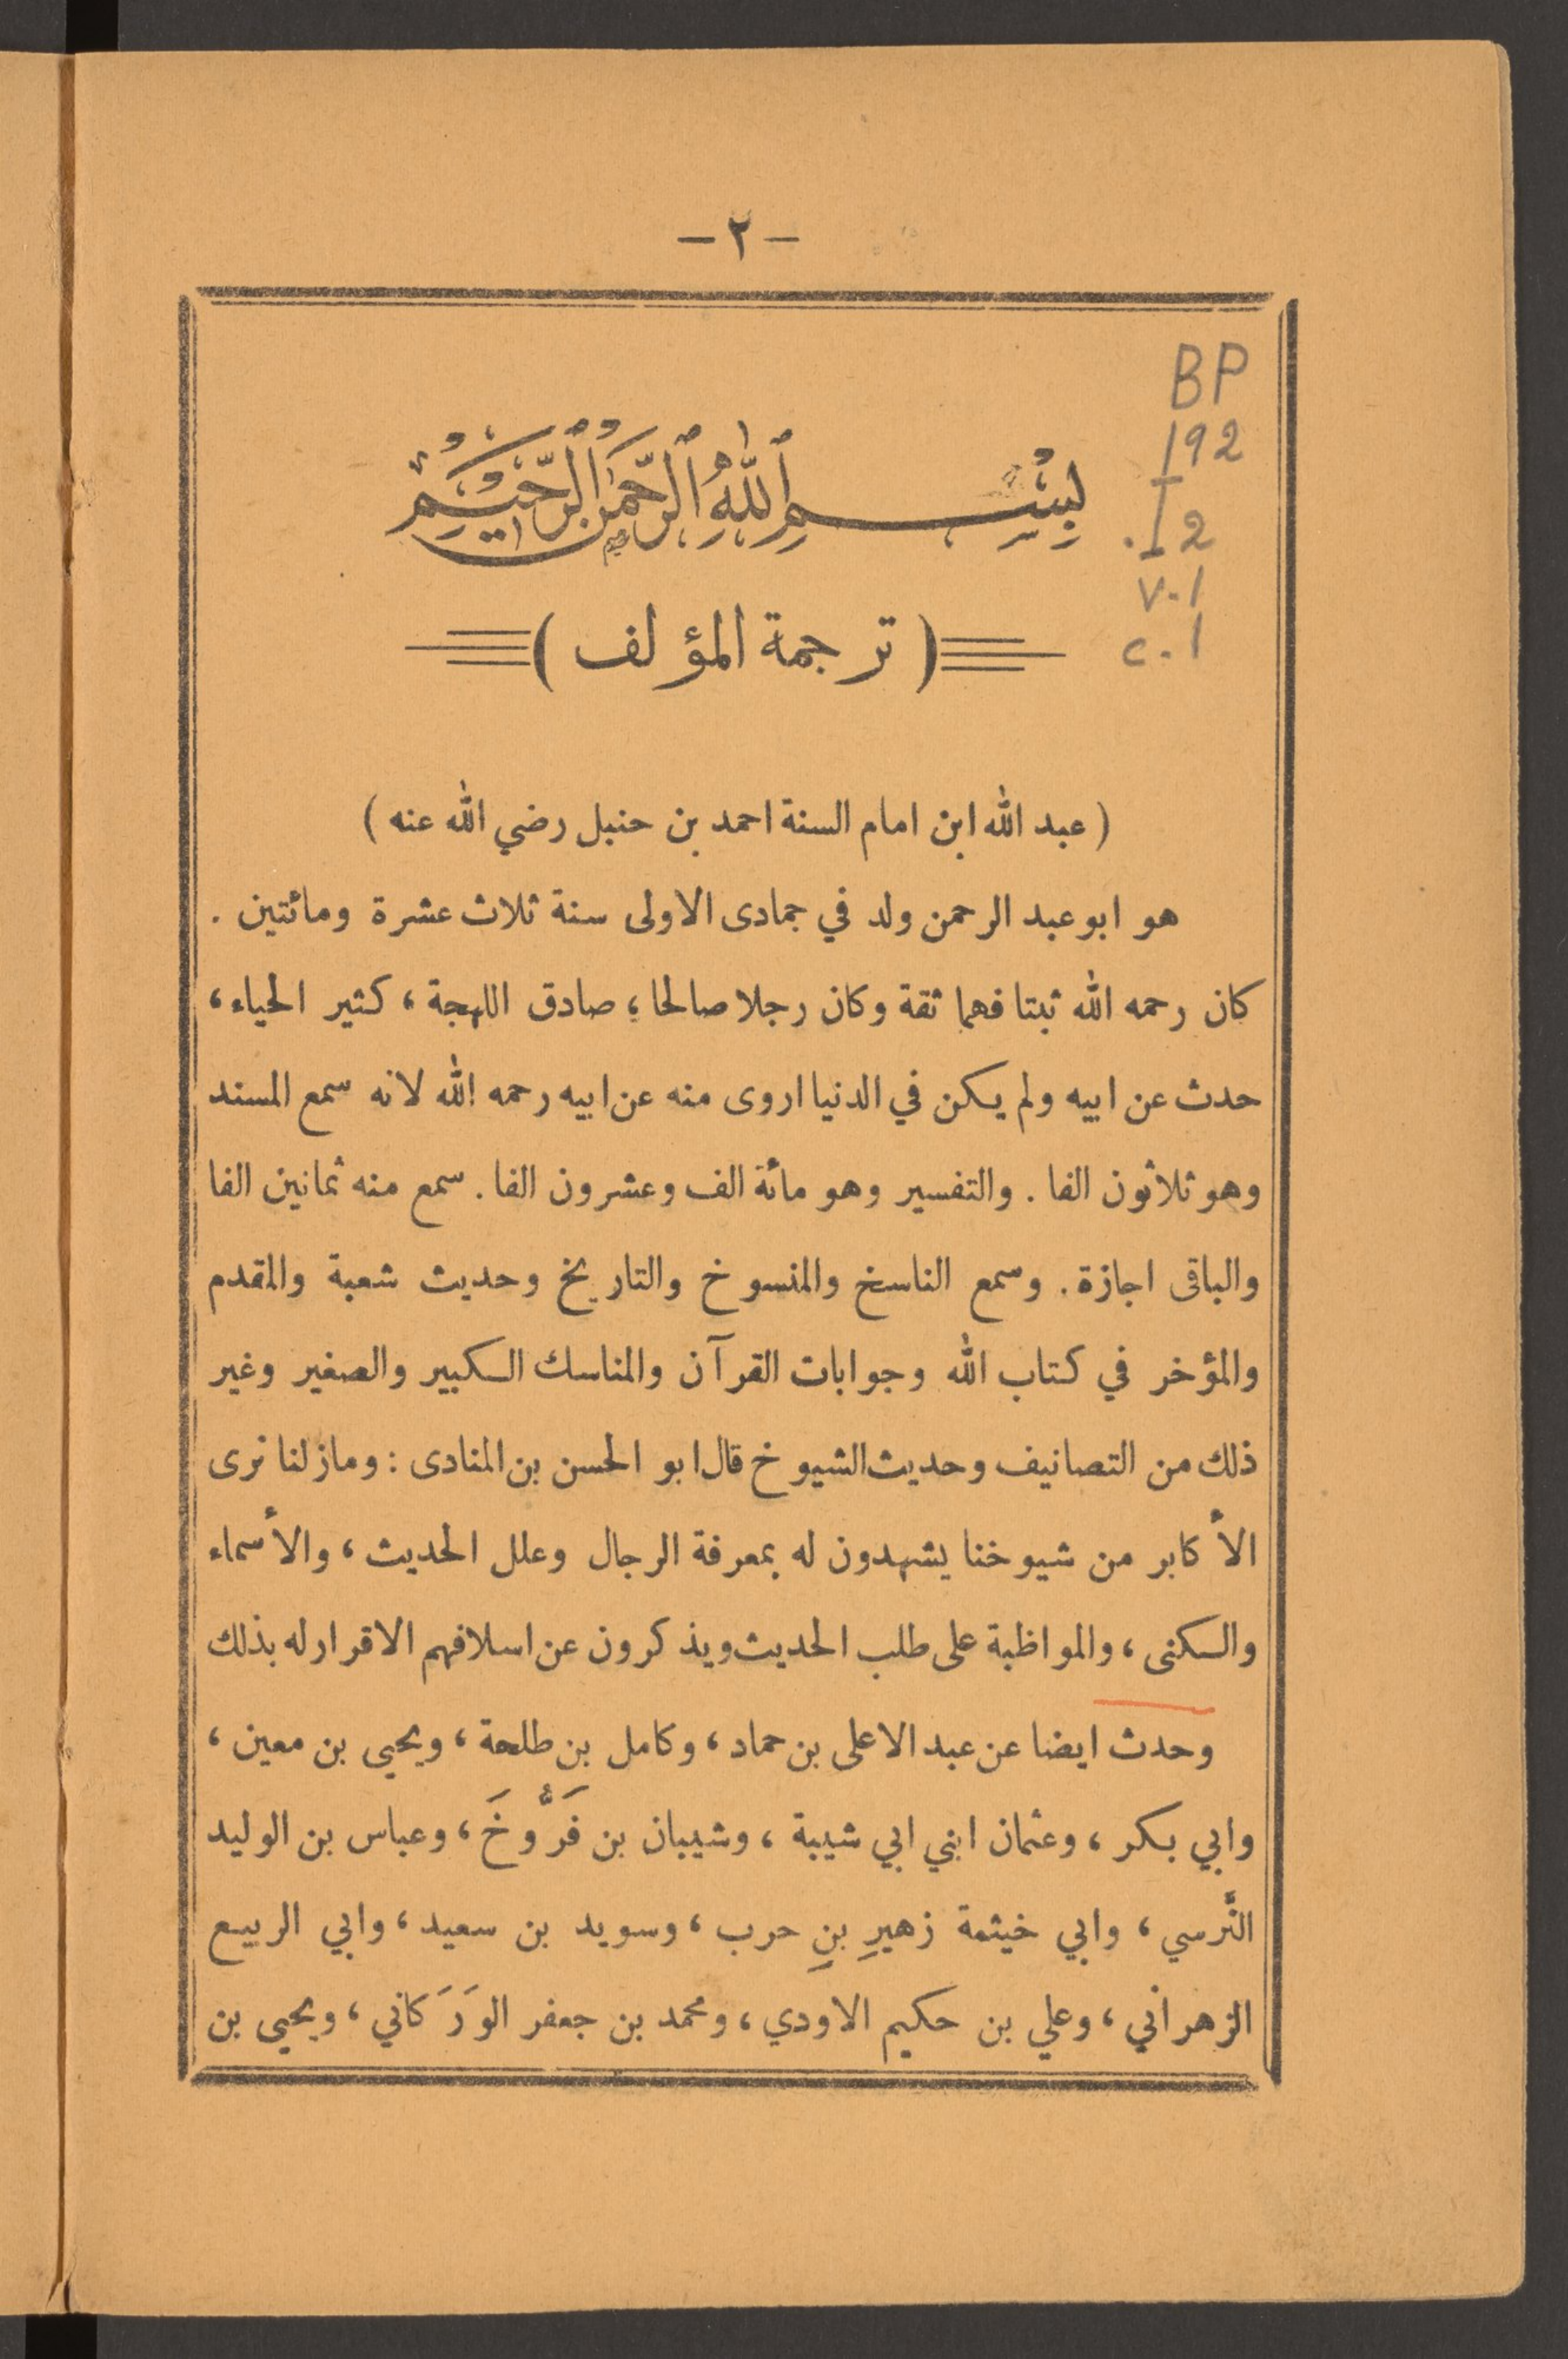 — ٢ —
BP
192
.I2
v.1
c.1
بِسْمِ اللهِ الرَّحْمٰنِ الرَّحِيْمِ
( ترجمة المؤلف )
( عبد الله ابن امام السنة احمد بن حنبل رضي الله عنه )
هو ابو عبد الرحمن ولد في جمادى الاولى سنة ثلاث عشرة ومائتين .
كان رحمه الله ثبتا فهما ثقة وكان رجلا صالحا ؛ صادق اللهجة ، كثير الحياء ،
حدث عن ابيه ولم يكن في الدنيا اروى منه عن ابيه رحمه الله لانه سمع المسند
وهو ثلاثون الفا . والتفسير وهو مائة الف وعشرون الفا . سمع منه ثمانين الفا
والباقى اجازة . وسمع الناسخ والمنسوخ والتاريخ وحديث شعبة والمقدم
والمؤخر في كتاب الله وجوابات القرآن والمناسك الكبير والصغير وغير
ذلك من التصانيف وحديث الشيوخ قال ابو الحسن بن المنادى : ومازلنا نرى
الأكابر من شيوخنا يشهدون له بمعرفة الرجال وعلل الحديث ، والأسماء
والكنى ، والمواظبة على طلب الحديث ويذكرون عن اسلافهم الاقرار له بذلك
وحدث ايضا عن عبد الاعلى بن حماد ، وكامل بن طلحة ، ويحيى بن معين ،
وابي بكر ، وعثمان ابني ابي شيبة ، وشيبان بن فَرُّوخَ ، وعباس بن الوليد
النَّرسي ، وابي خيثمة زهيرِ بنِ حرب ، وسويد بن سعيد ، وابي الربيع
الزهراني ، وعلي بن حكيم الاودي ، ومحمد بن جعفر الوَرَكاني ، ويحيى بن